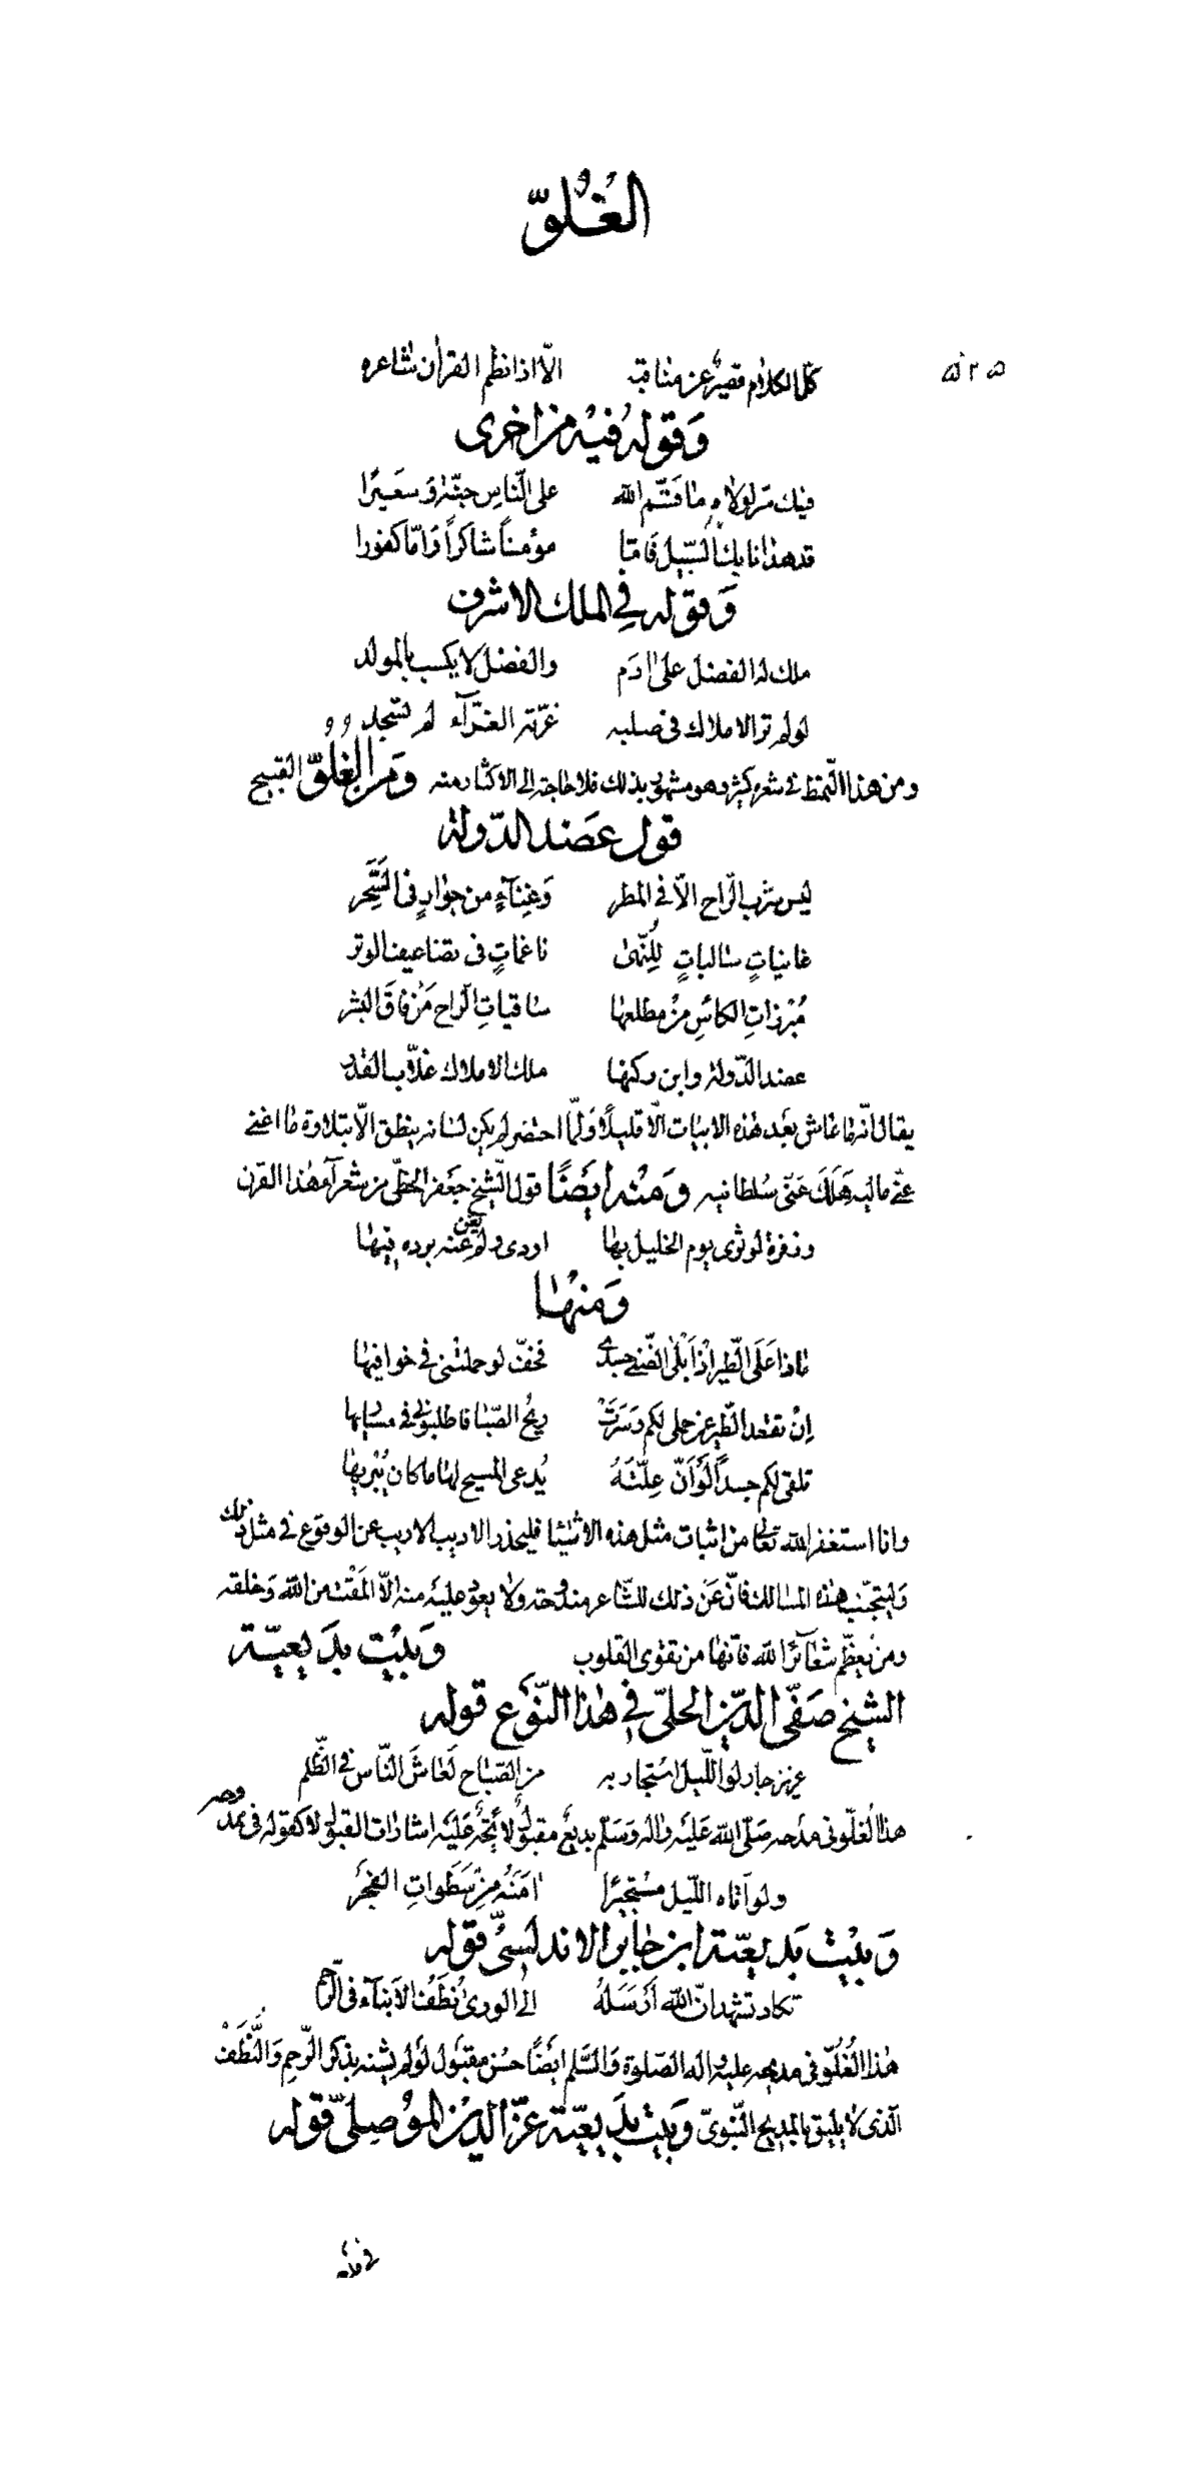 الغُلُوّ
٥٢٥
كلّ الكلام قصيرٌ عن مناقبه الّا اذا نظم القرآن شاعره
وَقوله فيه من اخرى
فيك سرّ لولاه ما قسّم الله على النّاس جنّة وَسعيرا
قد هدانا بك السّبيل فَامّا مؤمناً شاكراً وَامّا كفورا
وَقوله في الملك الاشرف
ملك له الفضل على ادم والفضل لا يكسب بالمولد
لو لم تر الاملاك في صلبه غرّته الغرّآء لم تسجد
ومن هذا النمّط في شعره كثير وهو مشهور بذلك فلا حاجة الى الاكثار منه وَمن الغلوّ القبيح
قول عضد الدّولة
ليس شرب الرّاح الّا في المطر وَغِنآءٍ من جوارٍ في السَّحَر
غانياتٍ سالباتٍ للنّهىٰ ناغماتٍ في تضاعيف الوتر
مُبرزاتِ الكاسِ من مطلعها ساقياتِ الرّاح مَن فاقَ البشر
عضد الدّولة وابن ركنها ملك الاملاك غلّاب القدر
يقال انّه ما عاش بَعد هذه الابيات الّا قليلاً وَلمّا احتضر لم يكن لسانه ينطق الّا بتلاوة ما اغنى
عنّي ماليه هَلَكَ عَنّي سُلطانيه وَمنه ايضًا قول الشّيخ جعفر الخطّي من شعرآء هذا القرن
وزفرة لو ثوى يوم الخليل بها اودى ولم يغن عنه برده فيها
وَمنها
ماذا عَلَى الطّير اذ اَبلَى الضّنى جسدي فخفّ لو حملتني في خوافيها
اِنْ تقعد الطّير عن حملي لكم وَسَرَتْ ريحُ الصّبا فاطلبوني في مسابها
تلقى لكم جسداً لَو اَنّ عِلّتَهُ يُدعى المسيح لها ما كان يُبريها
وانا استغفر الله تعالى من اثبات مثل هذه الاشيا فليحذر الاديب الاريب عن الوقوع في مثل ذلك
وَليتجنّب هذه المسالك فانّ عَن ذلك للشّاعر مندوحة ولا يعود عليَه منه الّا المَقْت من الله وَخلقه
ومن يعظّم شعآئر الله فانّها من تقوى القلوب وَبيْت بدَيعيّة
الشيخ صَفّي الدّين الحلّي في هٰذا النّوع قوله
عزيز جار لو اللّيل استجار به من الصّباح لَعاشَ النّاس في الظّلم
هذا الُغلّو في مدَحه صَلّى الله عَليَه واله وَسَلّم بديعٌ مقبولٌ لائحةٌ عَليَه اشارات القبول لا كقوله في ممدوحه
ولو اَتاه اللّيل مستجيرًا امَنَهُ مِنْ سَطَواتِ الفجر
وَبيْت بَديعيّة ابن جابر الاندلسيّ قوله
تكاد تشهد انّ الله اَرْسَلهُ الى الورى نُطَفُ الاَبنآء في الرّحم
هٰذا الُغُلُوّ في مديحه عليه واله الصّلوة وَالسّلم ايضًا حسن مقبول لو لم يشنه بذكر الرّحم وَالنُّطَفْ
الذي لا يليق بالمديح النّبويّ وَبيت بدَيعيّة عزّ الدين الموُصِليّ قوله